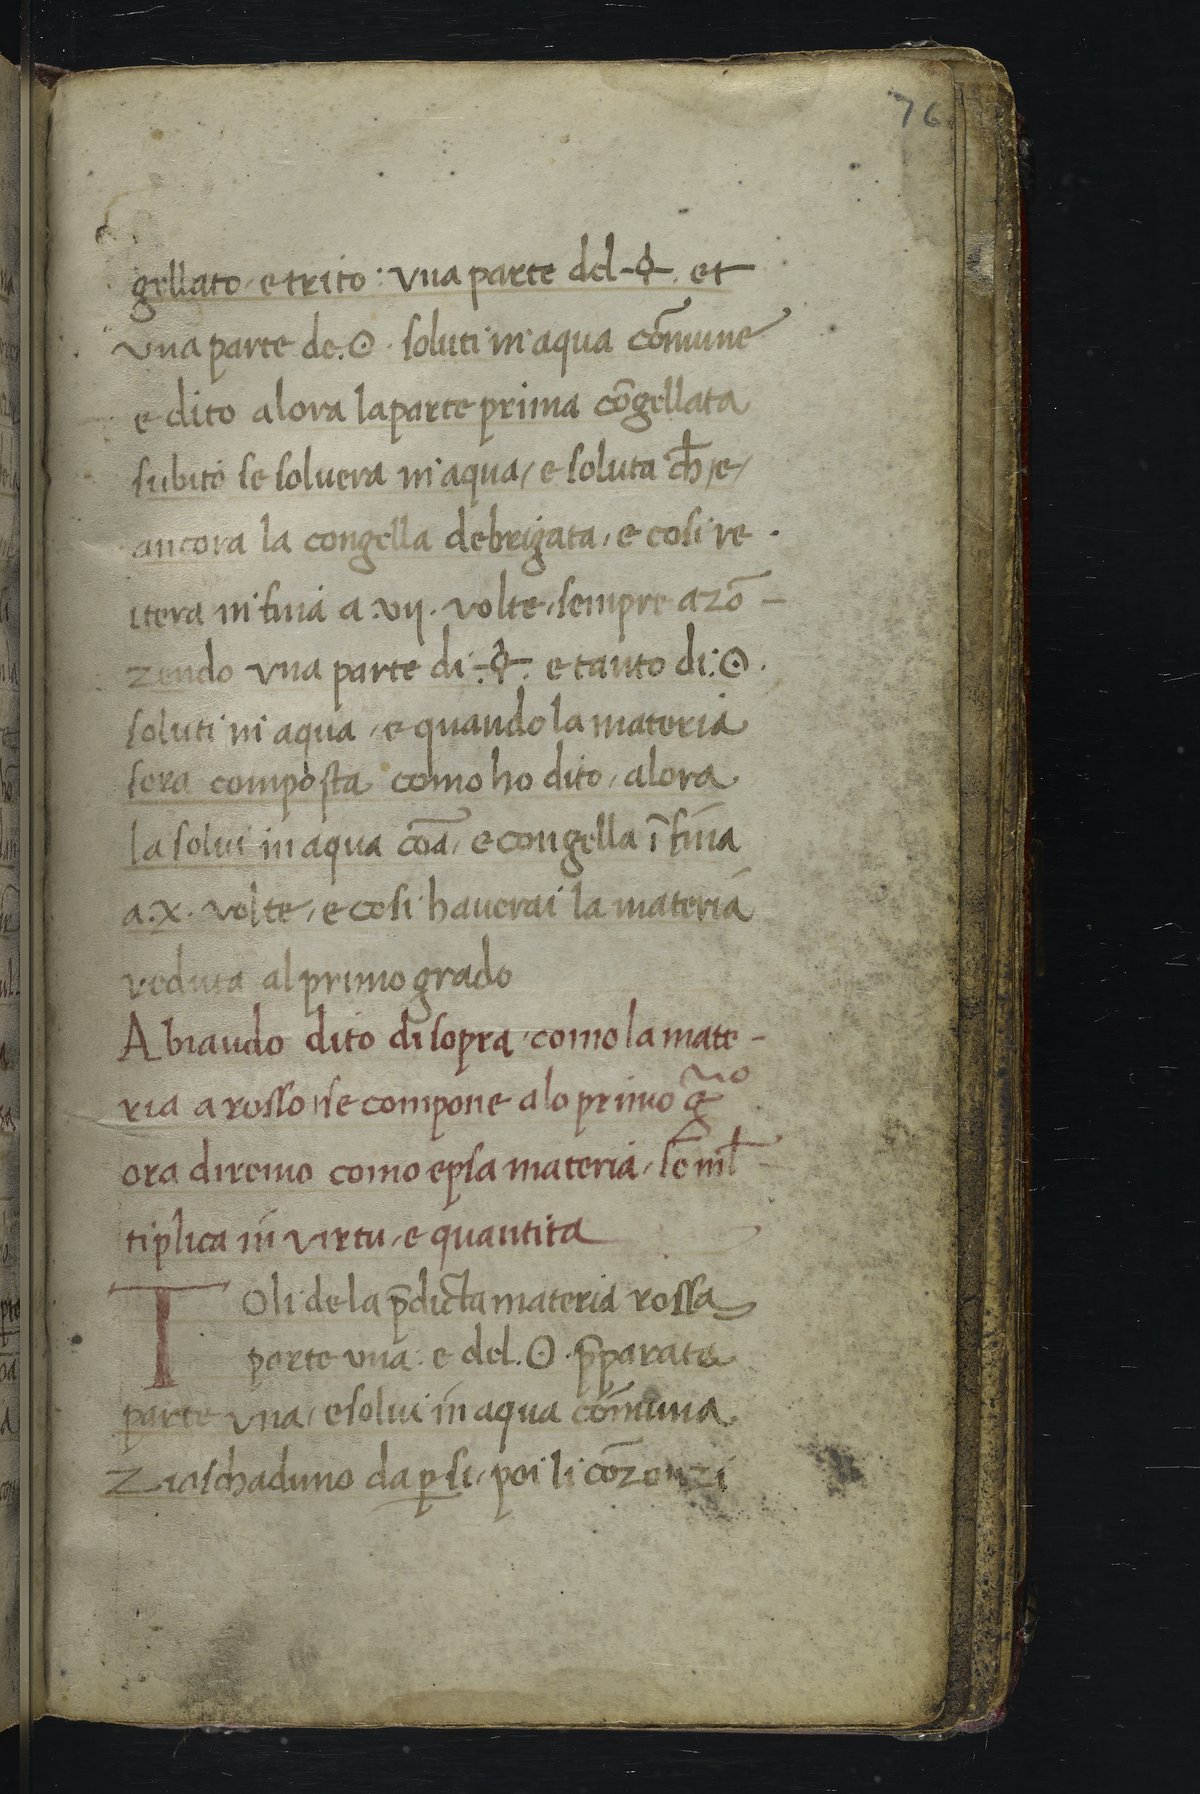 76
gellato e trito: vna parte del ☿. et
vna parte de. ☉. soluti in aqua cōmune
e dito alora la parte prima cōgellata
subito se soluera in aqua, e soluta ch̄, e,
ancora la congella debrigata, e cosi re
itera in fina a .vii. volte, sempre azō-
zendo vna parte di .☿. e tanto di: ☉.
soluti in aqua, e quando la materia
sera composta como ho dito, alora
la solui in aqua cōa, e congella ī fina
a .x. volte, e cosi hauerai la materia
reduta al primo grado
Abiando dito di sopra, como la mate-
ria a rosso, se compone a lo primo gͬᵒ
ora diremo como epsa materia, se ml̄
tiplica in virtu, e quantita
Toli de la p̄dicta materia rossa
parte vna. e del. ☉. p̄parata
parte vna, e solui in aqua cōmuna
Ziaschaduno da ꝑ si, poi li cōzonzi